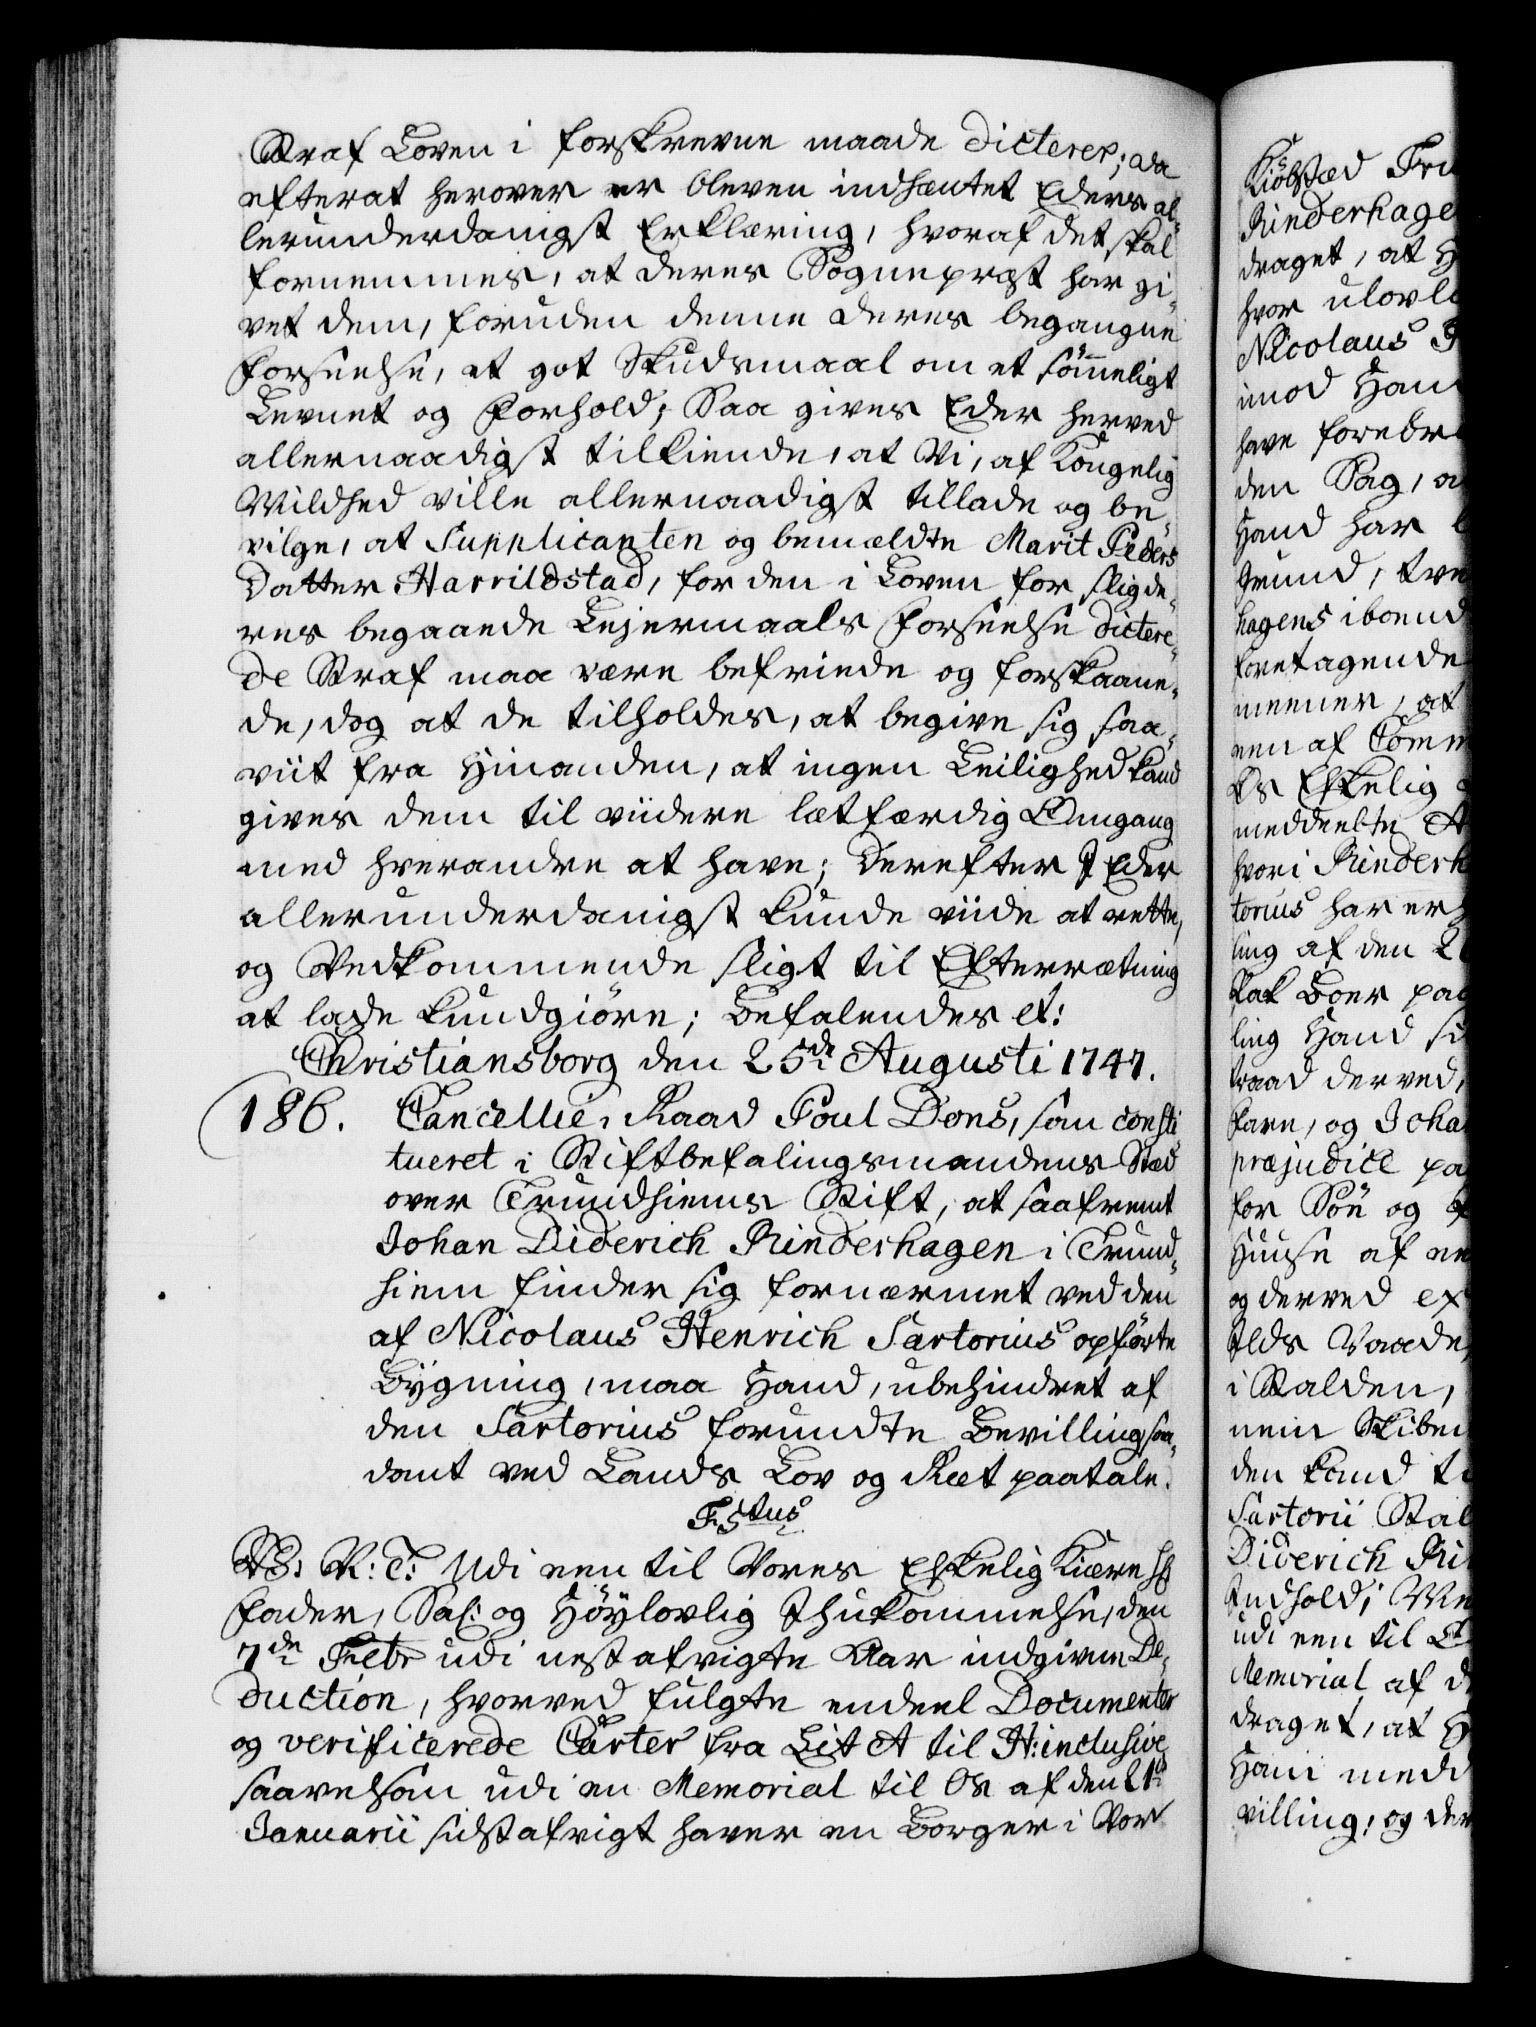 Straf Loven i forskrevne maade dicterer; da
efterat herover er bleven indhæntet Eders al-
lerunderdanigst Erklæring, hvoraf det skal
fornemmes, at deres Sognepræst har gi-
vet dem, foruden denne deres begangne
Forseelse, et got Skudsmaal om et sömmeligt
Levnet og Forhold; Saa gives Eder herved
allernaadigst tilkiende, at Vi, af Kongelig
Mildhed ville allernaadigst tillade og be-
vilge, at Supplicanten og bemældte Marit Peders
Datter Harrildstad, for den i Loven for slig de-
res begaaede Lejermaals Forseelse dictere-
de Straf maa være befriede og forskaane-
de, dog at de tilholdes, at begive sig saa-
viit fra hinanden, at ingen Leilighed kand
gives dem til viidere letfærdig Omgang
med hverandre at have; Derefter I Eder
allerunderdanigst kunde viide at rette,
og Vedkommende sligt til Efterretning
at lade kundgiöre; Befalendes et:
Christiansborg den 25de Augusti 1747.
186. Cancellie-Raad Poul Dons, som consti
tueret i Stiftbefalingsmandens Stæd
over Trundhiems Stift, at saafremt
Johan Diderich Rinderhagen i Trund-
hiem finder sig fornærmet ved den
af Nicolaus Henrich Sartorius opförte
Bÿgning, maa Hand, ubehindret af
den Sartorius forundte Bevilling, saa-
dant ved Lands Lov og Ræt paatale.
F5tus
V: G: T: Udi een til Vores Elskelig Kiære Hr
Fader, Sal: og Höylovlig Ihukommelse, den
7de Febr udi nest afvigte Aar indgiven De-
duction, hvorved fulgte endeel Documenter
og verificerede Carter fra Lit A til H: inclusive
saavelsom udi en Memorial til Os af den 21de
Januarii sidstafvigt haver en Borger i Vor
Kiöbstæd Tru
Rinderhage
draget, at H
hvor ulovl
Nicolaus
imod Ham
have foredr
den Sag, a
Hand har
Grund, tve
hagens iboend
foretagende
meener, at
een af Com
Os Elskelig
meddeelte A
hvori Rinderh
torius har er
ling af den 2
kat Boer paa
ling Hand
raad derved,
fare, og Joha
præjudice pa
for Sön og
Huuse af
og derved ex
Ilds Vaade,
i Stalden,
den kand
Sartorii Stal
Diderich Ri
Indhold;
udi een til
Memorial af d
draget, at H
Ham medd
villing, og der